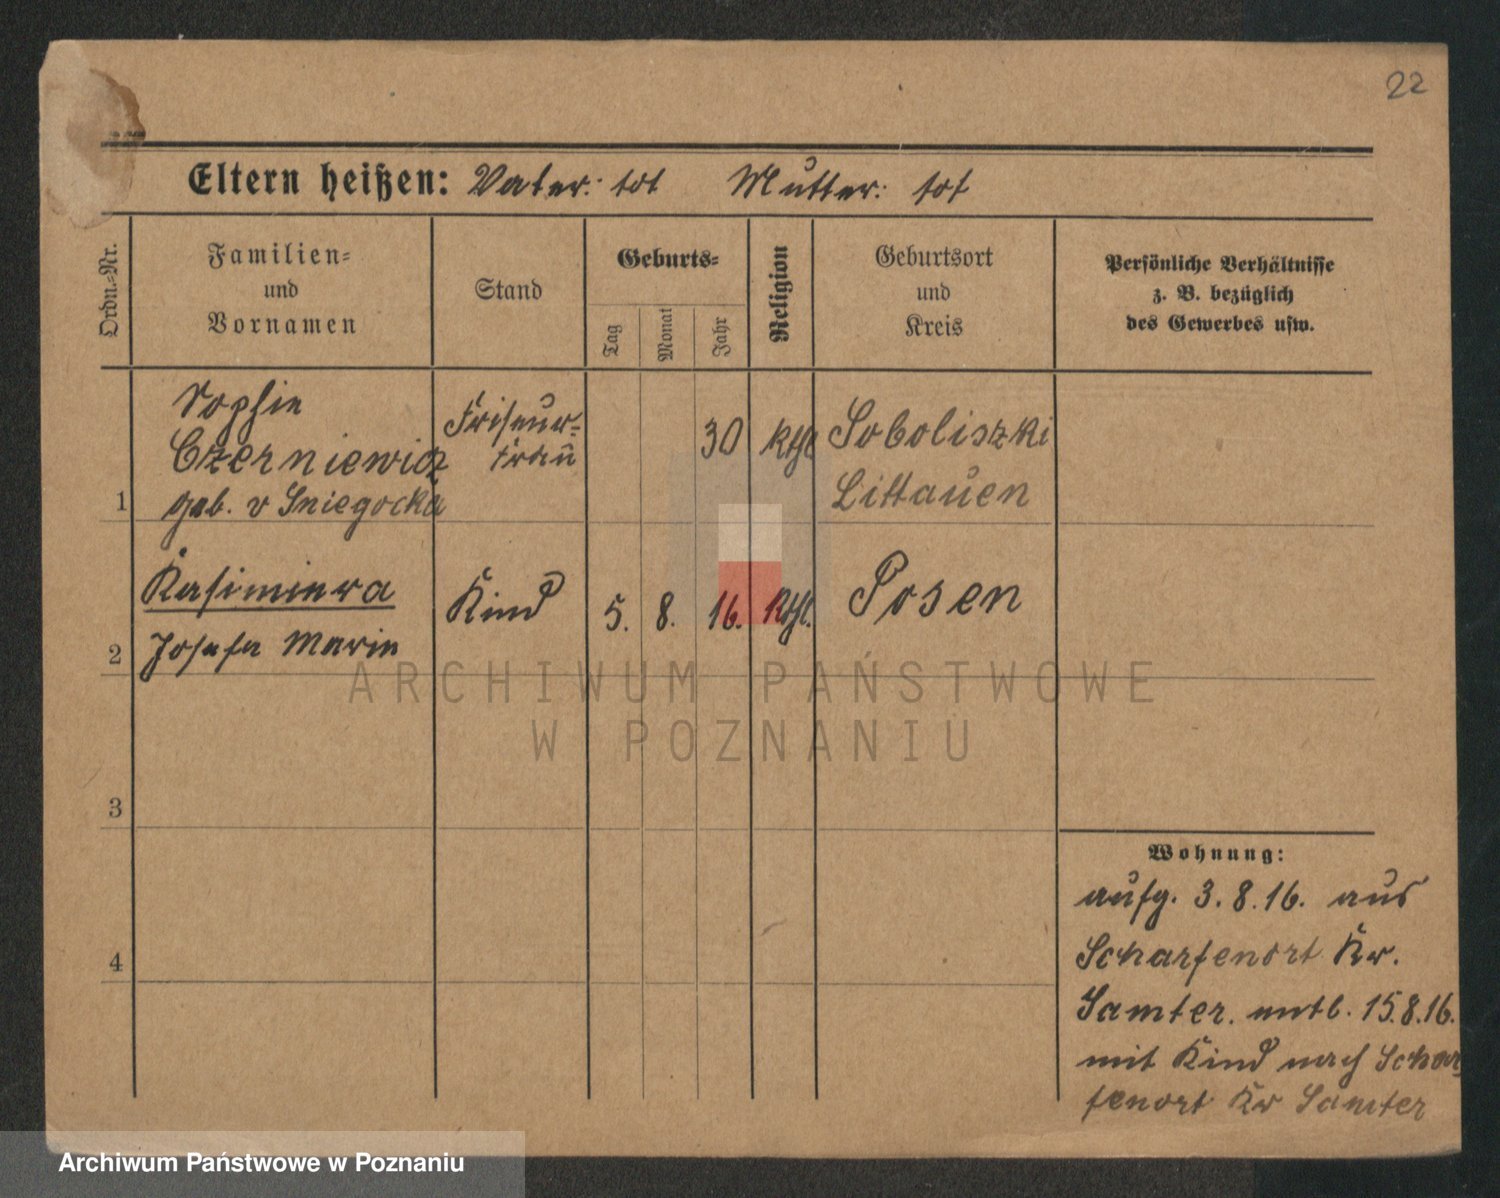 22
Eltern heißen: Vater: tot Mutter: tot
Ordn.-Nr.
Familien-
und
Vornamen
Stand
Geburts-
Tag
Monat
Jahr
Religion
Geburtsort
und
Kreis
Persönliche Verhältnisse
z. B. bezüglich
des Gewerbes usw.
1
Sophie
Czerniewicz
geb. v Sniegocka
Friseur-
frau
30
kthl
Soboliszki
Littauen
2
Kasimiera
Josefa Marie
Kind
5. 8. 16.
kthl.
Posen
3
4
Wohnung:
aufg. 3.8.16. aus
Scharfenort Kr.
Samter. entl. 15.8.16.
mit Kind nach Schar
fenort Kr Samter
ARCHIWUM PAŃSTWOWE
W POZNANIU
Archiwum Państwowe w Poznaniu